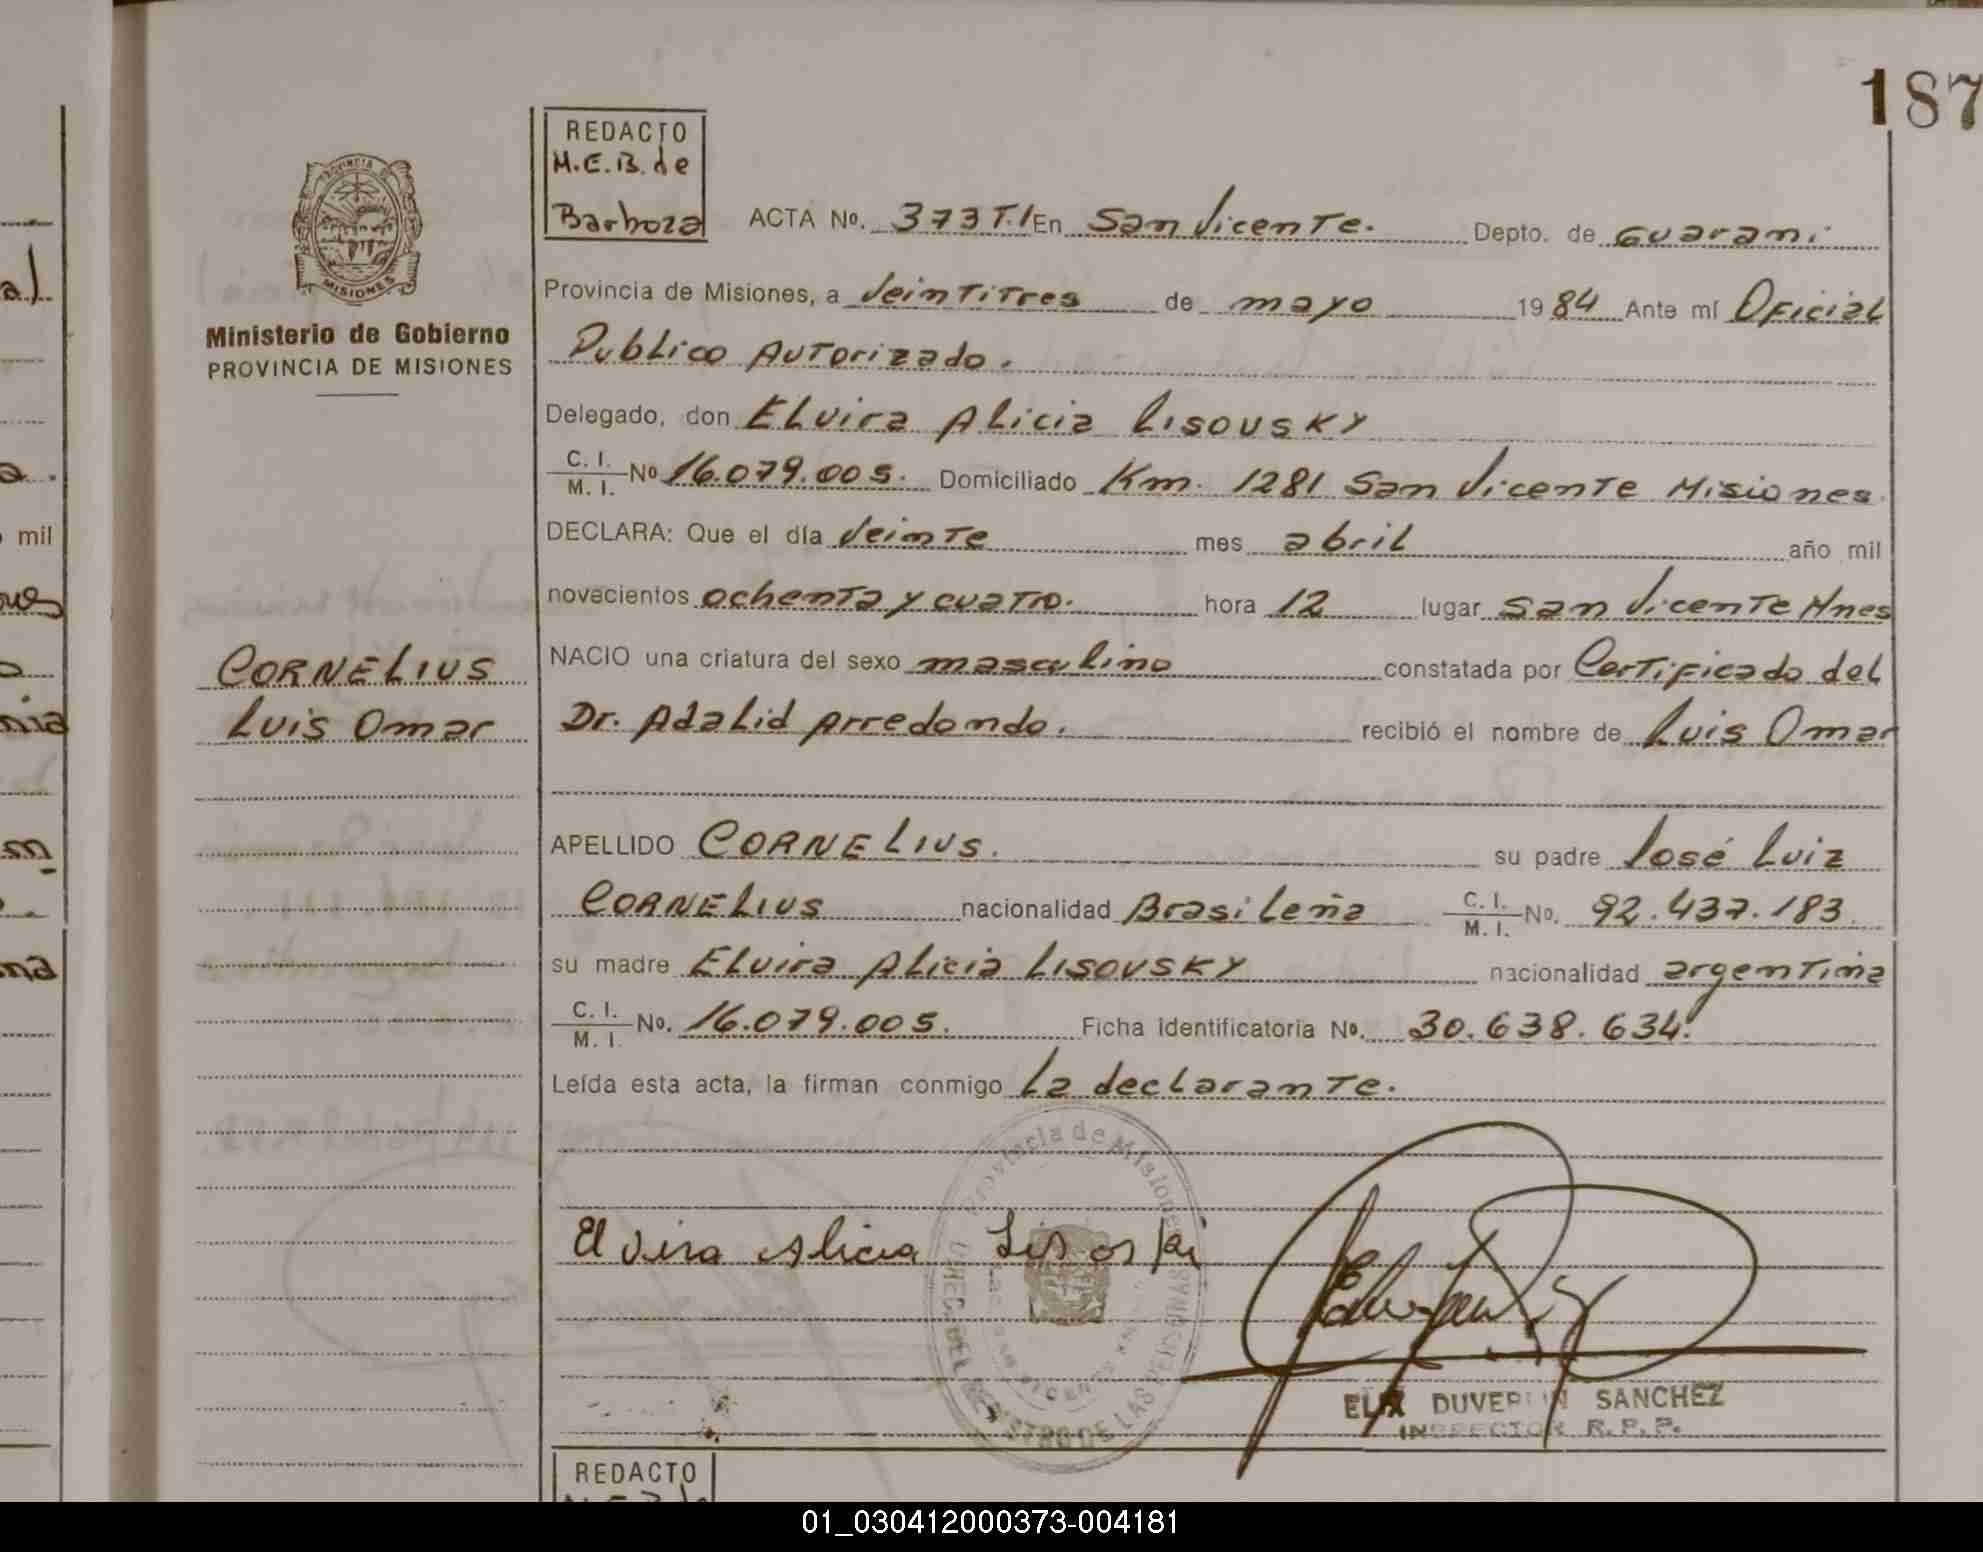 187
REDACTO
M.E.B. de
Barboza
PROVINCIA DE
MISIONES
Ministerio de Gobierno
PROVINCIA DE MISIONES
ACTA Nº. 373 T.I En San Vicente. Depto. de Guarani
Provincia de Misiones, a veintitres de mayo 1984 Ante mí Oficial
Publico Autorizado.
Delegado, don Elvira Alicia Lisovsky
C. I.
M. I. Nº 16.079.005. Domiciliado Km. 1281 San Vicente Misiones
DECLARA: Que el día veinte mes abril año mil
novecientos ochenta y cuatro. hora 12 lugar San Vicente Mnes
CORNELIUS
Luis Omar
NACIO una criatura del sexo masculino constatada por Certificado del
Dr. Adalid Arredondo. recibió el nombre de Luis Omar
APELLIDO CORNELIUS. su padre José Luiz
CORNELIUS nacionalidad Brasileña C. I. M. I. Nº. 92.437.183
su madre Elvira Alicia LISOVSKY nacionalidad argentina
C. I.
M. I. Nº. 16.079.005. Ficha identificatoria Nº. 30.638.634.
Leída esta acta, la firman conmigo la declarante.
Provincia de Misiones
Elvira Alicia Lisoski
DIREC. DEL REGISTRO DE LAS PERSONAS
ELIX DUVERLIN SANCHEZ
INSPECTOR R.P.P.
REDACTO
01_030412000373-004181